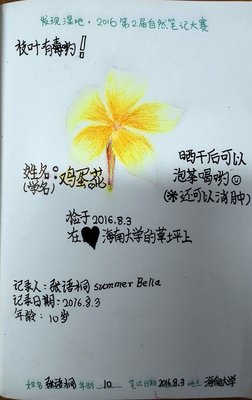 发现湿地·2016第2届自然笔记大赛
枝叶有毒哟!
姓名:鸡蛋花
(学名)
晒干后可以
泡茶喝哟☺
(※还可以消肿)
捡于2016.8.3
在♥海南大学的草坪上
记录人:张语桐 summer Bella
记录日期:2016.8.3
年龄:10岁
姓名 张语桐 年龄 10 笔记日期 2016.8.3 地点 海南大学